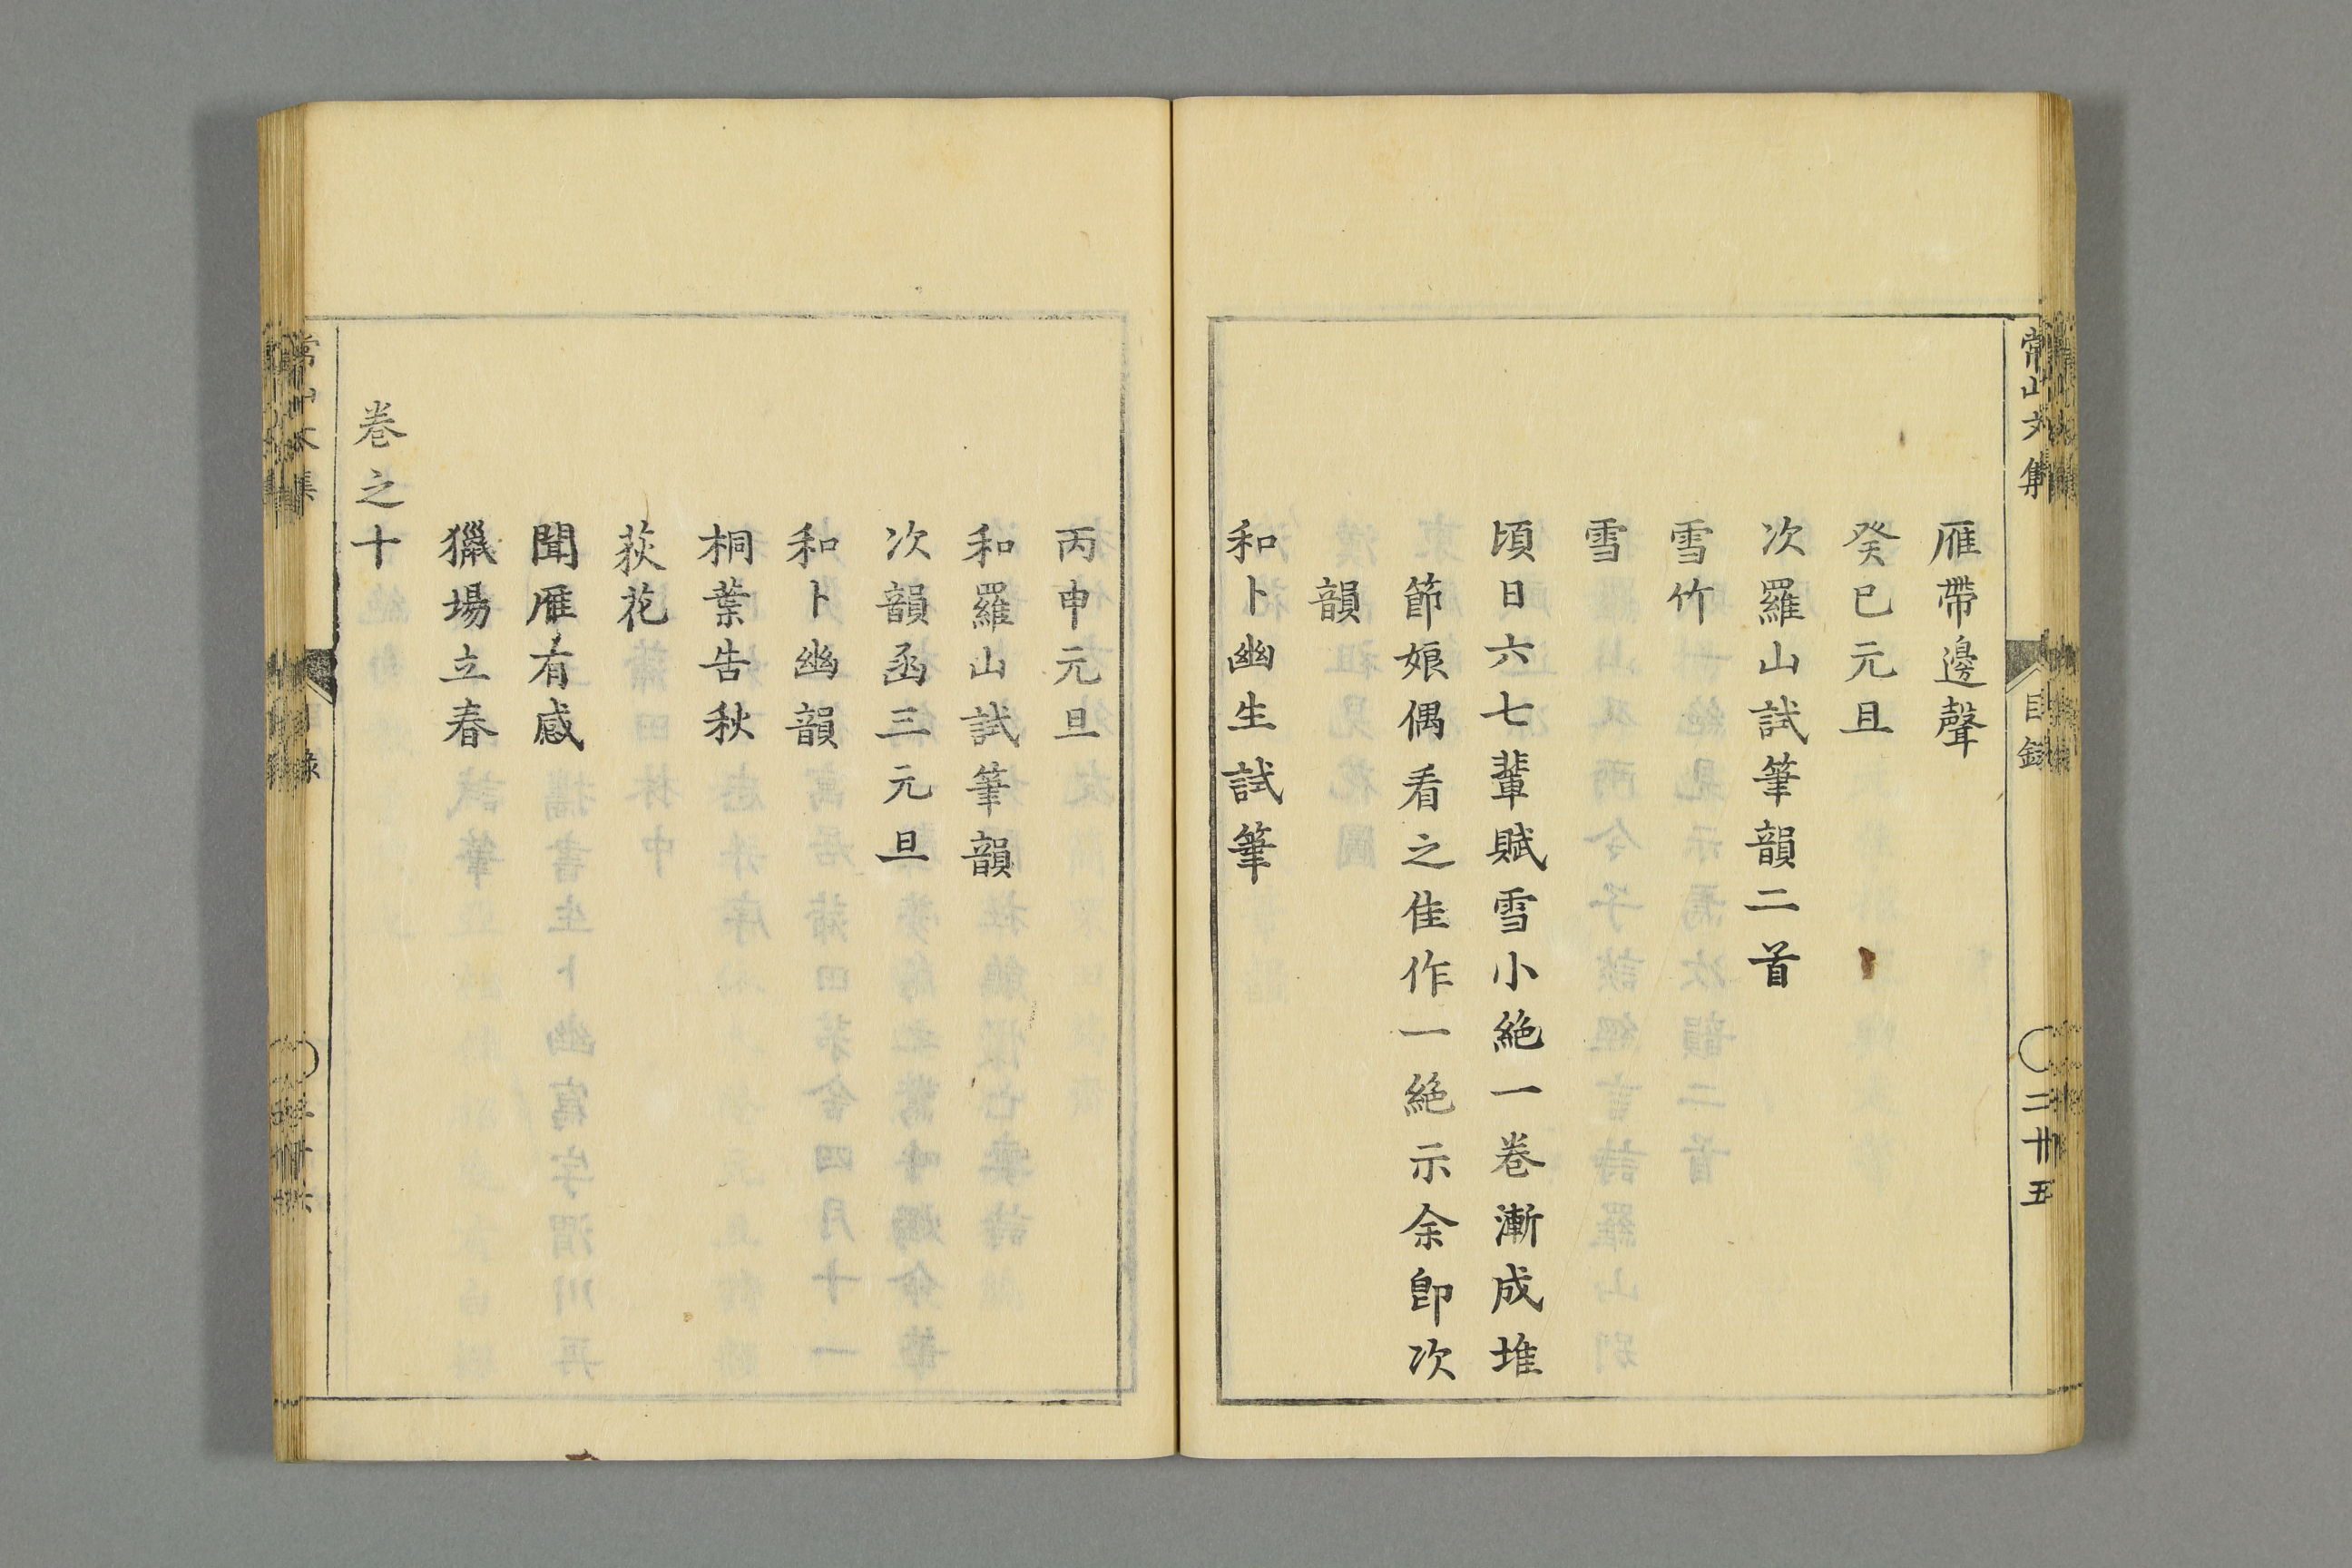 常山文集
目錄
二十五
雁帶邊聲
癸巳元旦
次羅山試筆韻二首
雪竹
雪
頃日六七輩賦雪小絶一卷漸成堆
節娘偶看之佳作一絶示余卽次
韻
和卜幽生試筆
丙申元旦
和羅山試筆韻
次韻函三元旦
和卜幽韻
桐葉告秋
荻花
聞雁有感
獵場立春
卷之十